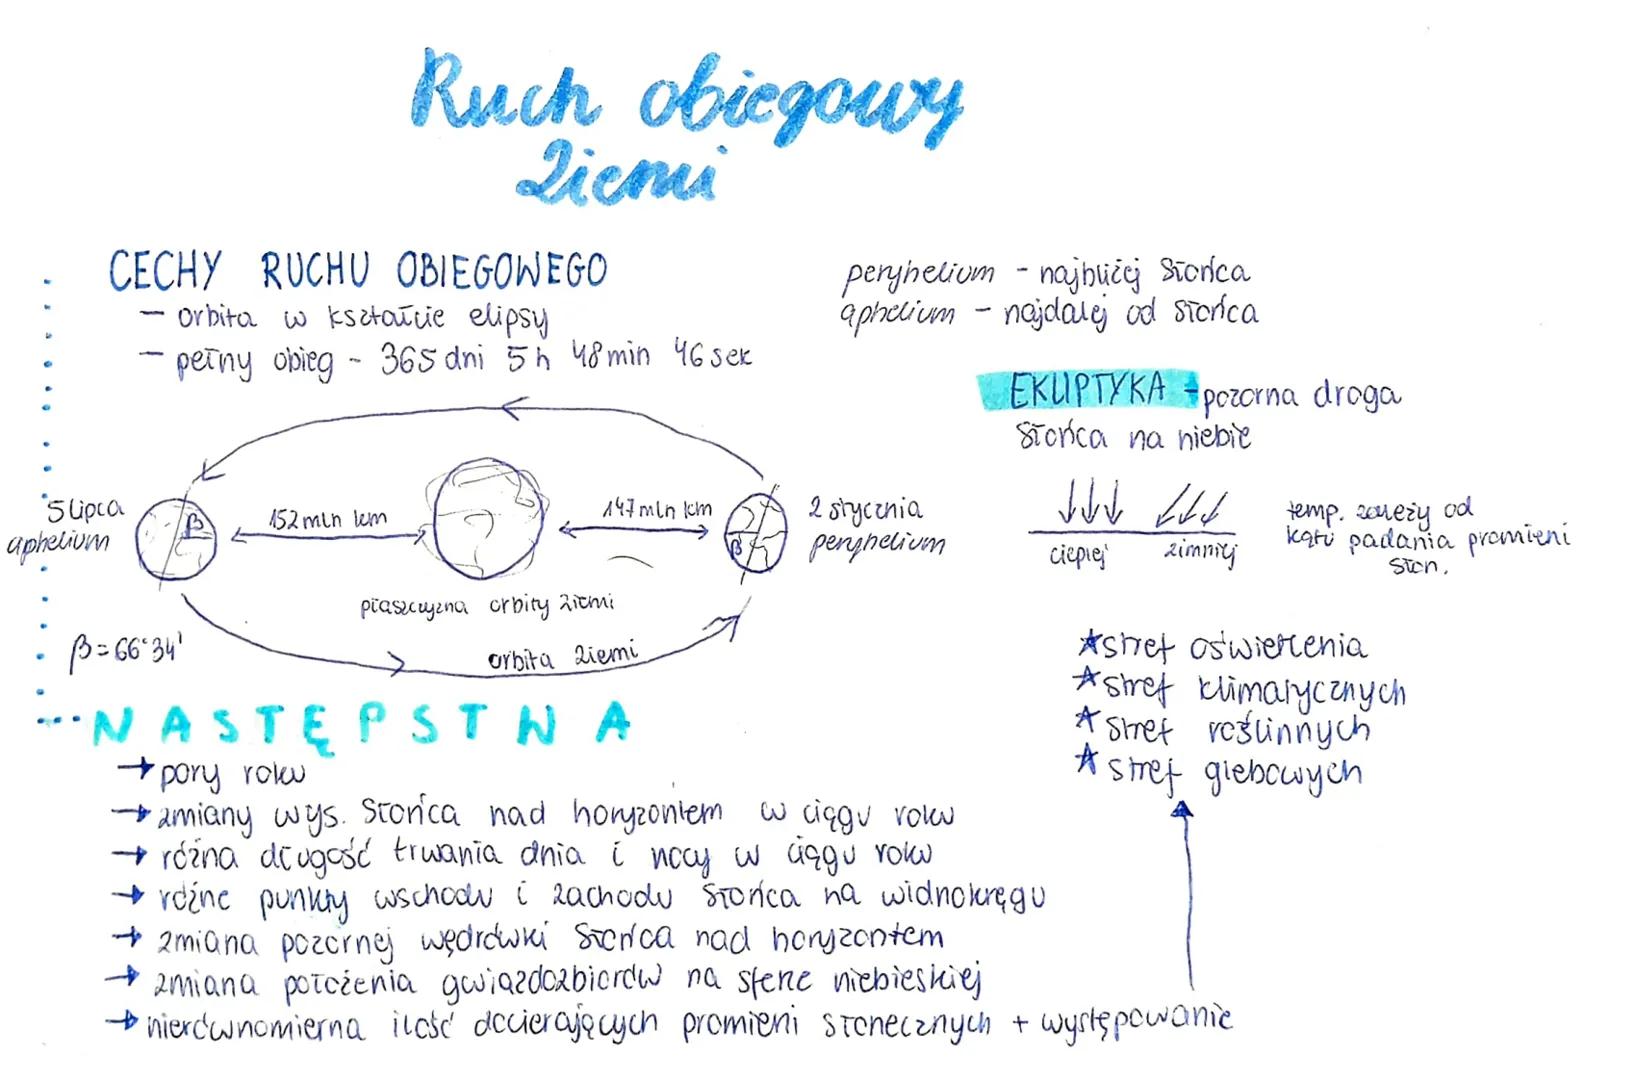 Ruch obiegowy
Ziemi
CECHY RUCHU OBIEGOWEGO
- orbita w kształcie elipsy
- pełny obieg - 365 dni 5h 48min 46sek
peryhelium - najbliżej Słońca
aphelium - najdalej od Słońca
EKLIPTYKA - pozorna droga
Słońca na niebie
5 lipca
aphelium
β
152 mln km
147 mln km
β
2 stycznia
peryhelium
płaszczyzna orbity Ziemi
orbita Ziemi
β=66°34'
cieplej
zimniej
temp. zależy od
kąta padania promieni
słon.
★ stref oświetlenia
★ stref klimatycznych
★ stref roślinnych
★ stref glebowych
NASTĘPSTWA
→ pory roku
→ zmiany wys. Słońca nad horyzontem w ciągu roku
→ różna długość trwania dnia i nocy w ciągu roku
→ różne punkty wschodu i zachodu Słońca na widnokręgu
→ zmiana pozornej wędrówki Słońca nad horyzontem
→ zmiana położenia gwiazdozbiorów na sferze niebieskiej
→ nierównomierna ilość docierających promieni słonecznych + występowanie